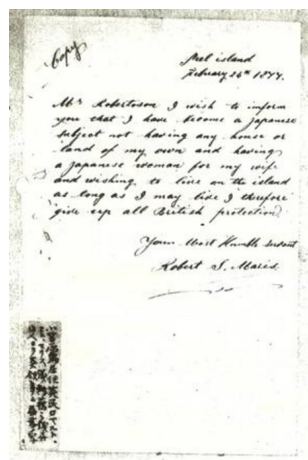 Copy
Peel island
February 26th 1877.
Mr Robertson I wish to inform
you that I have become a Japanese
subject not having any house or
land of my own and having
a Japanese woman for my wife
and wishing to live on the island
as long as I may live I therefore
give up all British protection
Your Most Humble servant
Robert